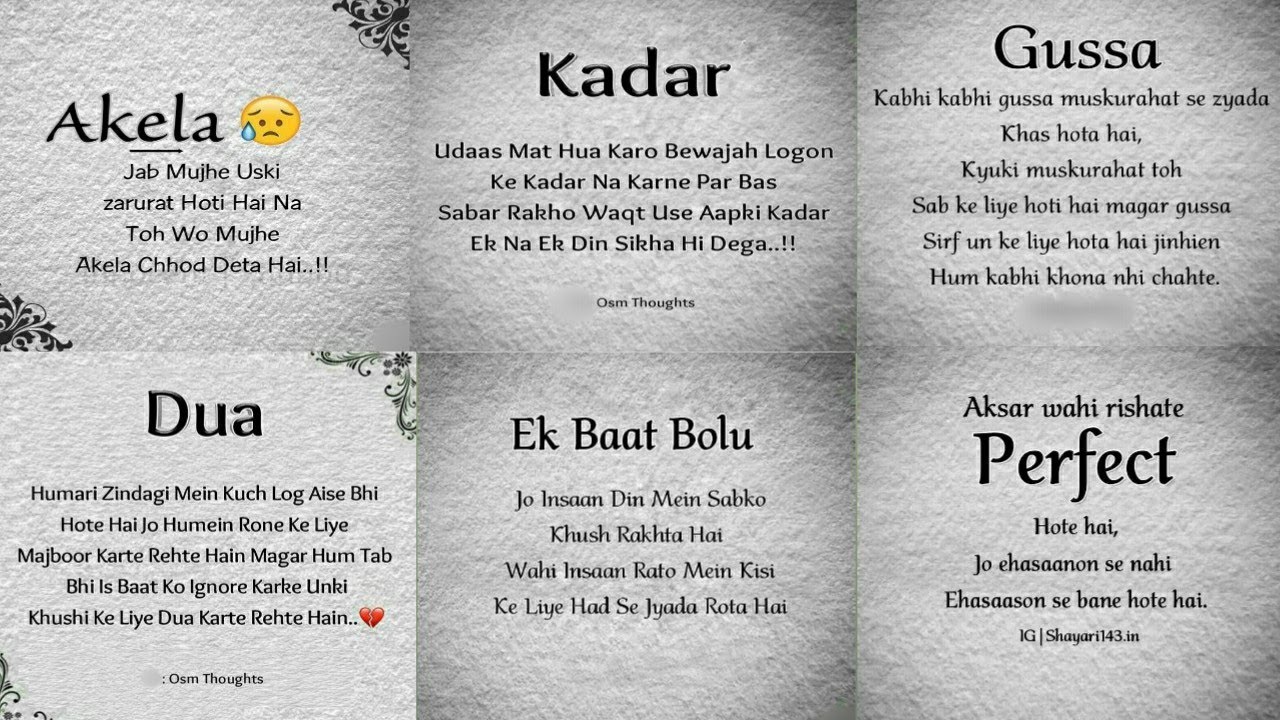 Akela 😥
Jab Mujhe Uski
zarurat Hoti Hai Na
Toh Wo Mujhe
Akela Chhod Deta Hai..!!
Kadar
Udaas Mat Hua Karo Bewajah Logon
Ke Kadar Na Karne Par Bas
Sabar Rakho Waqt Use Aapki Kadar
Ek Na Ek Din Sikha Hi Dega..!!
Osm Thoughts
Gussa
Kabhi kabhi gussa muskurahat se zyada
Khas hota hai,
Kyuki muskurahat toh
Sab ke liye hoti hai magar gussa
Sirf un ke liye hota hai jinhien
Hum kabhi khona nhi chahte.
Dua
Humari Zindagi Mein Kuch Log Aise Bhi
Hote Hai Jo Humein Rone Ke Liye
Majboor Karte Rehte Hain Magar Hum Tab
Bhi Is Baat Ko Ignore Karke Unki
Khushi Ke Liye Dua Karte Rehte Hain..💔
: Osm Thoughts
Ek Baat Bolu
Jo Insaan Din Mein Sabko
Khush Rakhta Hai
Wahi Insaan Rato Mein Kisi
Ke Liye Had Se Jyada Rota Hai
Aksar wahi rishate
Perfect
Hote hai,
Jo ehasaanon se nahi
Ehasaason se bane hote hai.
IG|Shayari143.in